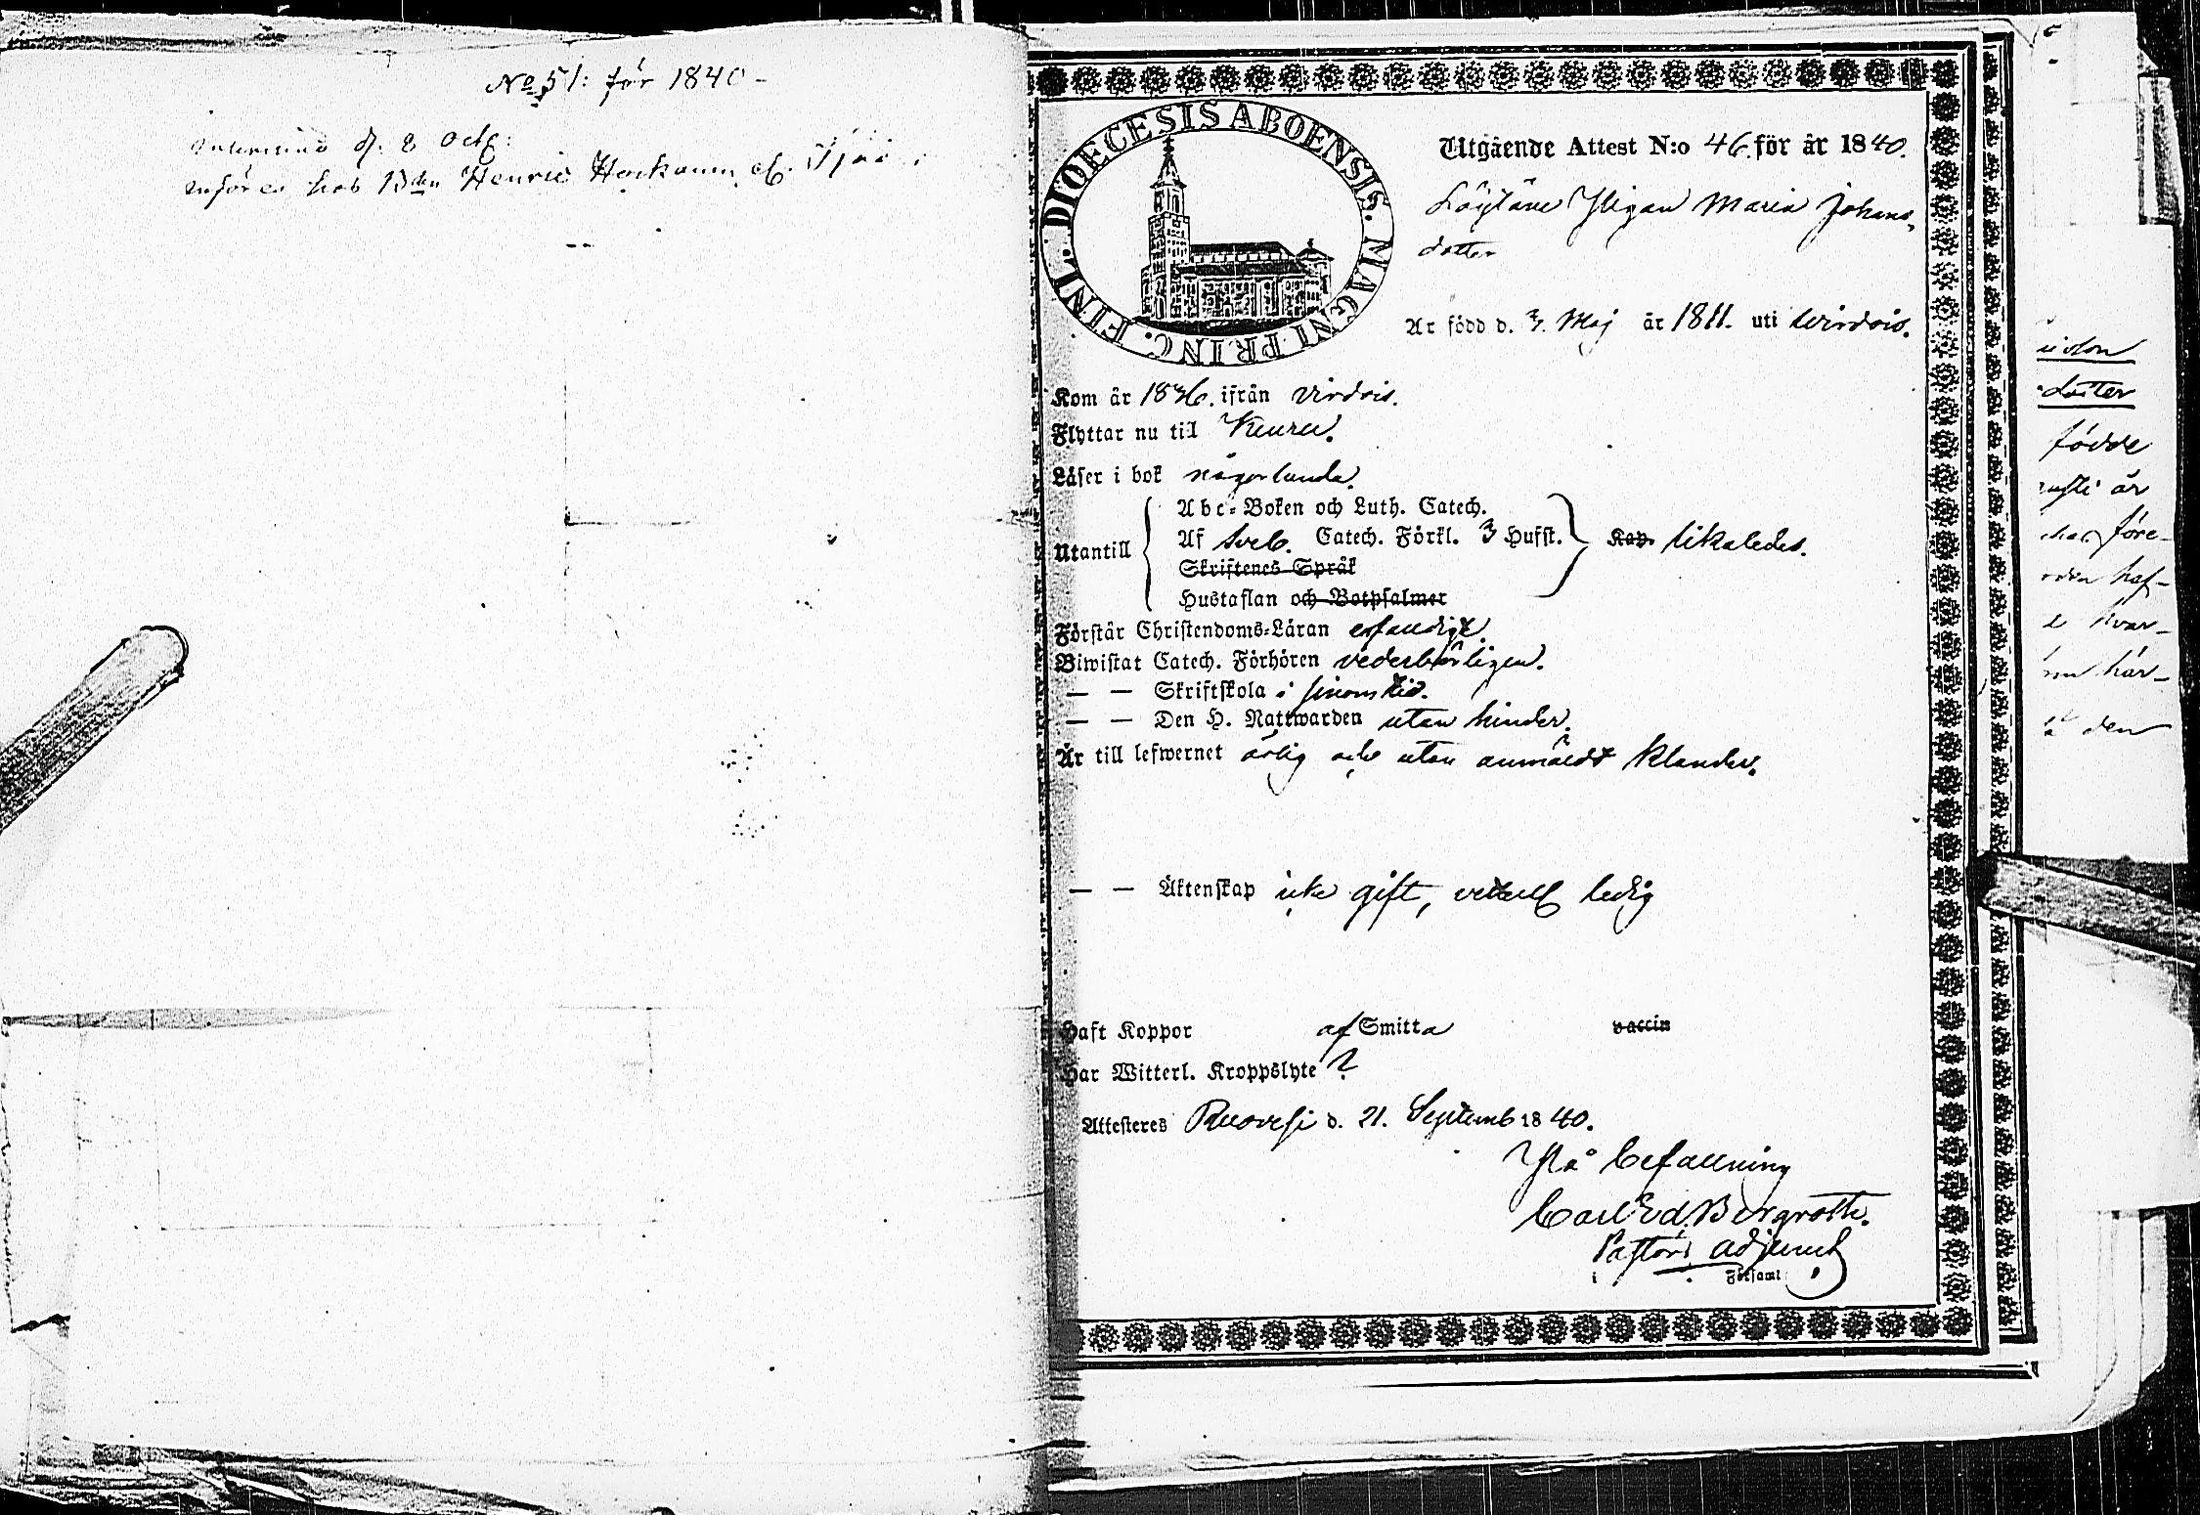 No 51: för 1840 -
d. 2 Octb:
införes hos Bden Henric
DIOECESIS ABOENSIS. MAGNI PRINC. FINL.
Utgående Attest N:o 46. för år 1840.
Pigan Maria Johans
dotter
Är född d. 3. Maj år 1811. uti Wirdois.
Kom år 1836. ifrån Virdois.
Flyttar nu till Keuru.
Läser i bok någorlunda.
Utantill
Abc-Boken och Luth. Catech.
Af Sveb. Catech. Förkl. 3 Hufst. Kap. likaledes.
Skriftenes Språk
Hustaflan och Botpsalmer
Förstår Christendoms-Läran
Biwistat Catech. Förhören vederbörligen.
— — Skriftskola i sinom tid.
— — Den H. Nattwarden utan hinder.
Är till lefwernet ärlig och utan anmäldt klander.
— — Äktenskap icke gift, ledig
Haft Koppor af Smitta vaccin
Har Witterl. Kroppslyte ?
Attesteres Ruovesi d. 21. Septemb 1840.
På befallning
Carl Ed. Bergroth.
Pastors adjunct
i Församl:
dotter
födde
år
före-
haf-
qvar-
här-
den